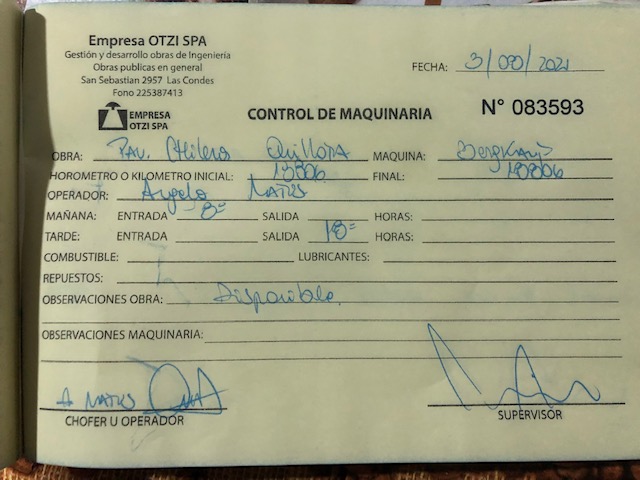 Empresa OTZI SPA
Gestión y desarrollo obras de Ingeniería
Obras publicas en general
San Sebastían 2957 Las Condes
Fono 225387413
EMPRESA
OTZI SPA
CONTROL DE MAQUINARIA
FECHA: 31/08/2021
N° 083593
OBRA: Quillota MAQUINA:
HOROMETRO O KILOMETRO INICIAL: FINAL:
OPERADOR: Angelo
MAÑANA: ENTRADA 8= SALIDA 18= HORAS:
TARDE: ENTRADA SALIDA HORAS:
COMBUSTIBLE: LUBRICANTES:
REPUESTOS:
OBSERVACIONES OBRA: Disponible.
OBSERVACIONES MAQUINARIA:
CHOFER U OPERADOR
SUPERVISOR